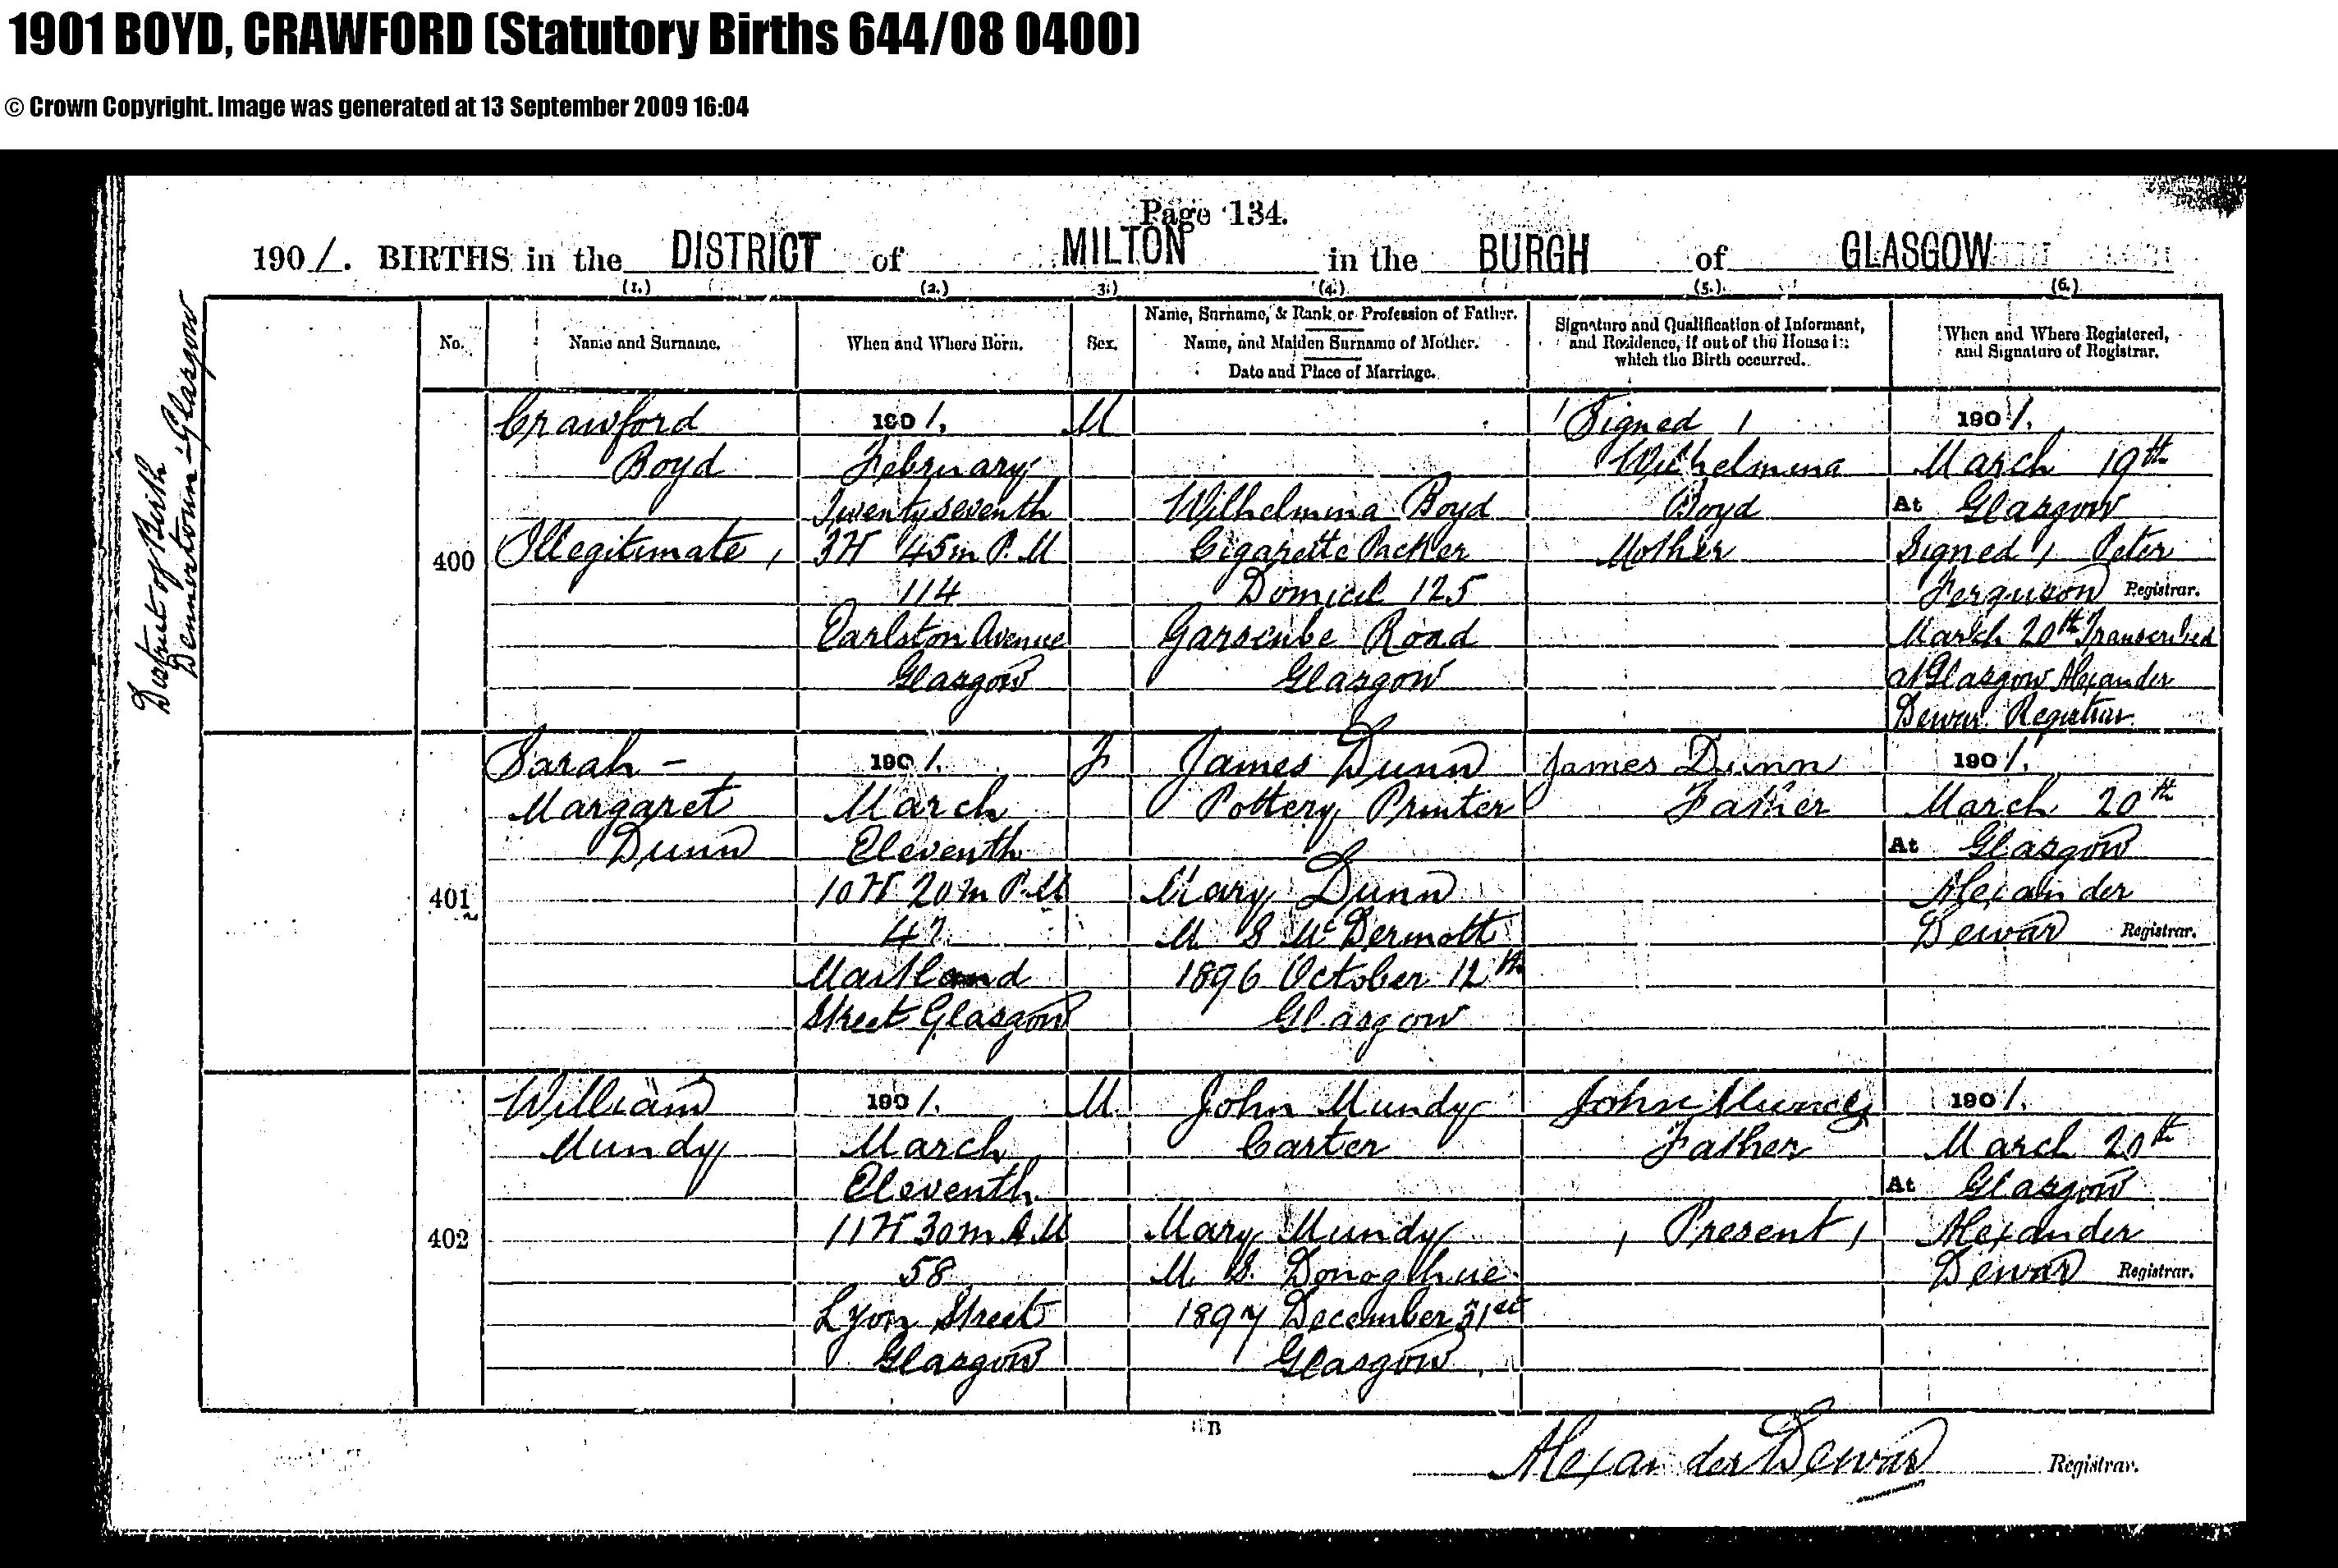 1901 BOYD, CRAWFORD (Statutory Births 644/08 0400)
© Crown Copyright. Image was generated at 13 September 2009 16:04
Page 134.
1901. BIRTHS in the DISTRICT of MILTON in the BURGH of GLASGOW
(1.) (2.) 3.) (4.) (5.) (6.)
No.
Name and Surname.
When and Where Born.
Sex.
Name, Surname, & Rank or Profession of Father.
Name, and Maiden Surname of Mother.
Date and Place of Marriage.
Signature and Qualification of Informant,
and Residence, if out of the House in
which the Birth occurred.
When and Where Registered,
and Signature of Registrar.
District of Birth
Dennistoun - Glasgow
400
Crawford
Boyd
Illegitimate,
1901.
February
Twentyseventh
3H 45m P.M
114
Earlston Avenue
Glasgow
M
Wilhelmina Boyd
Cigarette Packer
Domicil 125
Garscube Road
Glasgow
Signed,
Wilhelmina
Boyd
Mother
1901.
March 19th
At Glasgow
Signed, Peter
Ferguson Registrar.
March 20th Transcribed
at Glasgow Alexander
Dewar Registrar
401
Sarah -
Margaret
Dunn
1901.
March
Eleventh
10H 20m P.M
47
Maitland
Street Glasgow
F
James Dunn
Pottery Printer
Mary Dunn
M. S McDermott
1896 October 12th
Glasgow
James Dunn
Father
1901.
March 20th
At Glasgow
Alexander
Dewar Registrar.
402
William
Mundy
1901.
March
Eleventh
11H 30m A.M
58
Lyon Street
Glasgow
M.
John Mundy
Carter
Mary Mundy
M. S. Donoghue
1897 December 31st
Glasgow
John Mundy
Father
, Present,
1901.
March 20th
At Glasgow
Alexander
Dewar Registrar.
B
Alexander Dewar Registrar.